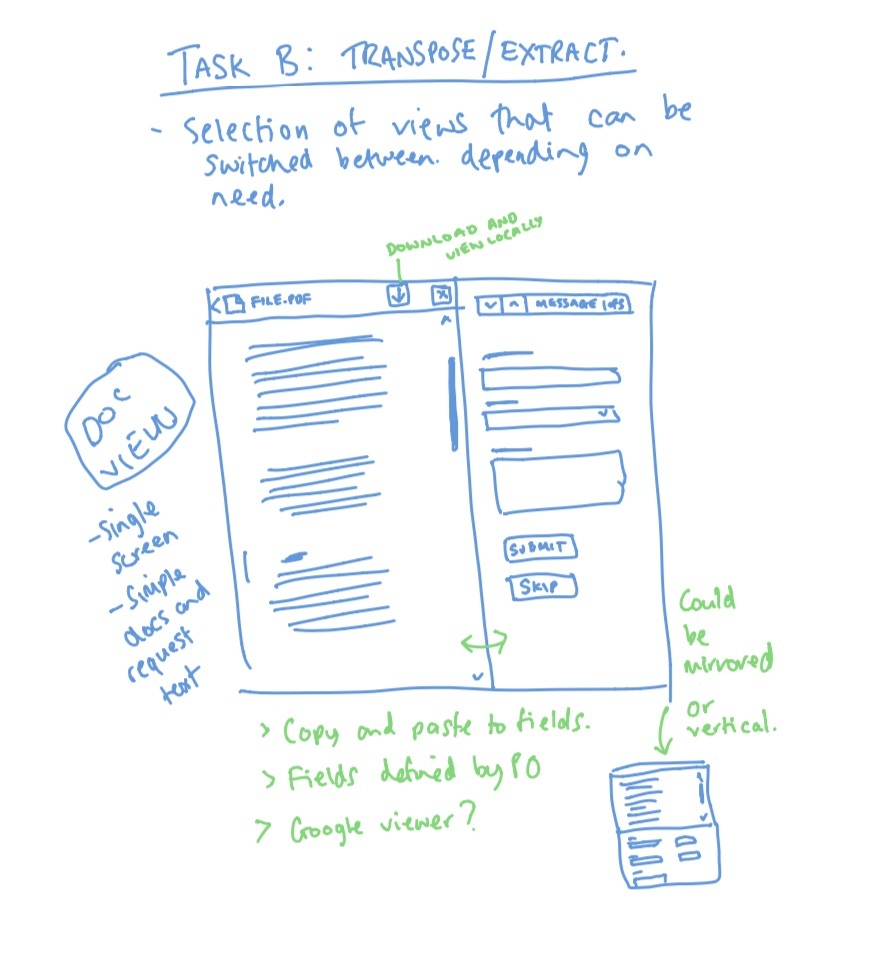 TASK B: TRANSPOSE/EXTRACT.
- Selection of views that can be
switched between. depending on
need.
DOWNLOAD AND
VIEW LOCALLY
FILE.PDF
MESSAGE 1 of 5
DOC
VIEW
- Single
screen
- Simple
docs and
request
text
SUBMIT
SKIP
Could
be
mirrored
or
vertical.
> Copy and paste to fields.
> Fields defined by PO
> Google viewer?